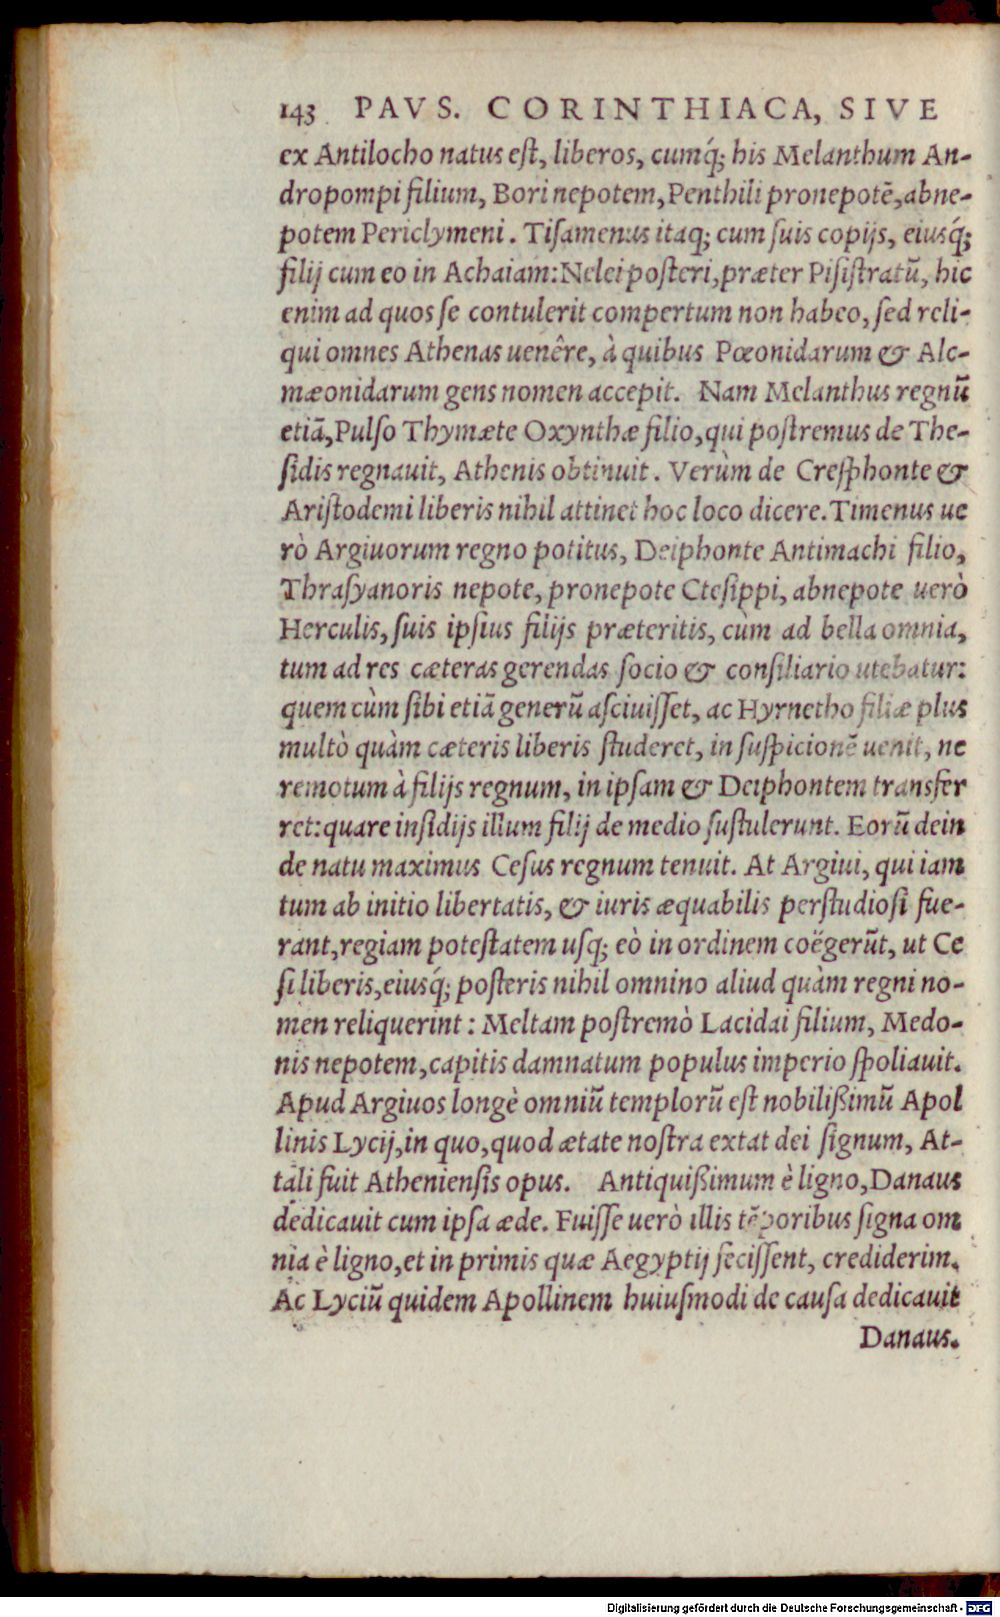 143 PAVS. CORINTHIACA, SIVE
ex Antilocho natus eſt, liberos, cumq́; his Melanthum An-
dropompi filium, Bori nepotem, Penthili pronepotē, abne-
potem Periclymeni. Tiſamenus itaq; cum ſuis copijs, eiusq́;
filij cum eo in Achaiam: Nelei poſteri, præter Piſiſtratū, hic
enim ad quos ſe contulerit compertum non habeo, ſed reli-
qui omnes Athenas uenêre, à quibus Pœonidarum & Alc-
mæonidarum gens nomen accepit. Nam Melanthus regnū
etiā, Pulſo Thymæte Oxynthæ filio, qui poſtremus de The-
ſidis regnauit, Athenis obtinuit. Verùm de Creſphonte &
Ariſtodemi liberis nihil attinet hoc loco dicere. Timenus ue
rò Argiuorum regno potitus, Deiphonte Antimachi filio,
Thraſyanoris nepote, pronepote Cteſippi, abnepote uerò
Herculis, ſuis ipſius filijs præteritis, cùm ad bella omnia,
tum ad res cæteras gerendas ſocio & conſiliario utebatur:
quem cùm ſibi etiā generū aſciuiſſet, ac Hyrnetho filiæ plus
multò quàm cæteris liberis ſtuderet, in ſuſpicionē uenit, ne
remotum à filijs regnum, in ipſam & Deiphontem transfer
ret: quare inſidijs illum filij de medio ſuſtulerunt. Eorū dein
de natu maximus Ceſus regnum tenuit. At Argiui, qui iam
tum ab initio libertatis, & iuris æquabilis perſtudioſi fue-
rant, regiam poteſtatem uſq; eò in ordinem coëgerūt, ut Ce
ſi liberis, eiusq́; poſteris nihil omnino aliud quàm regni no-
men reliquerint: Meltam poſtremò Lacidai filium, Medo-
nis nepotem, capitis damnatum populus imperio ſpoliauit.
Apud Argiuos longè omniū templorū eſt nobiliſsimū Apol
linis Lycij, in quo, quod ætate noſtra extat dei ſignum, At-
tali fuit Athenienſis opus. Antiquiſsimum è ligno, Danaus
dedicauit cum ipſa æde. Fuiſſe uerò illis tēporibus ſigna om
nia è ligno, et in primis quæ Aegyptij feciſſent, crediderim.
Ac Lyciū quidem Apollinem huiuſmodi de cauſa dedicauit
Danaus.
Digitalisierung gefördert durch die Deutsche Forschungsgemeinschaft - DFG